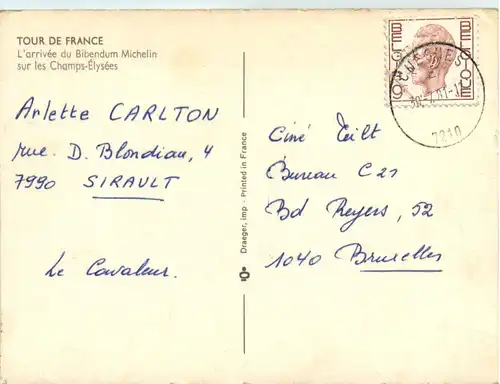 TOUR DE FRANCE
L'arrivée du Bibendum Michelin
sur les Champs-Élysées
Arlette CARLTON
rue. D. Blondiau, 4
7990 SIRAULT
Le Cavaleur.
Draeger, imp - Printed in France
BELGIQUE
BELGIE
7210
Ciné Tilt
Bureau C21
Bd Reyers, 52
1040 Bruxelles